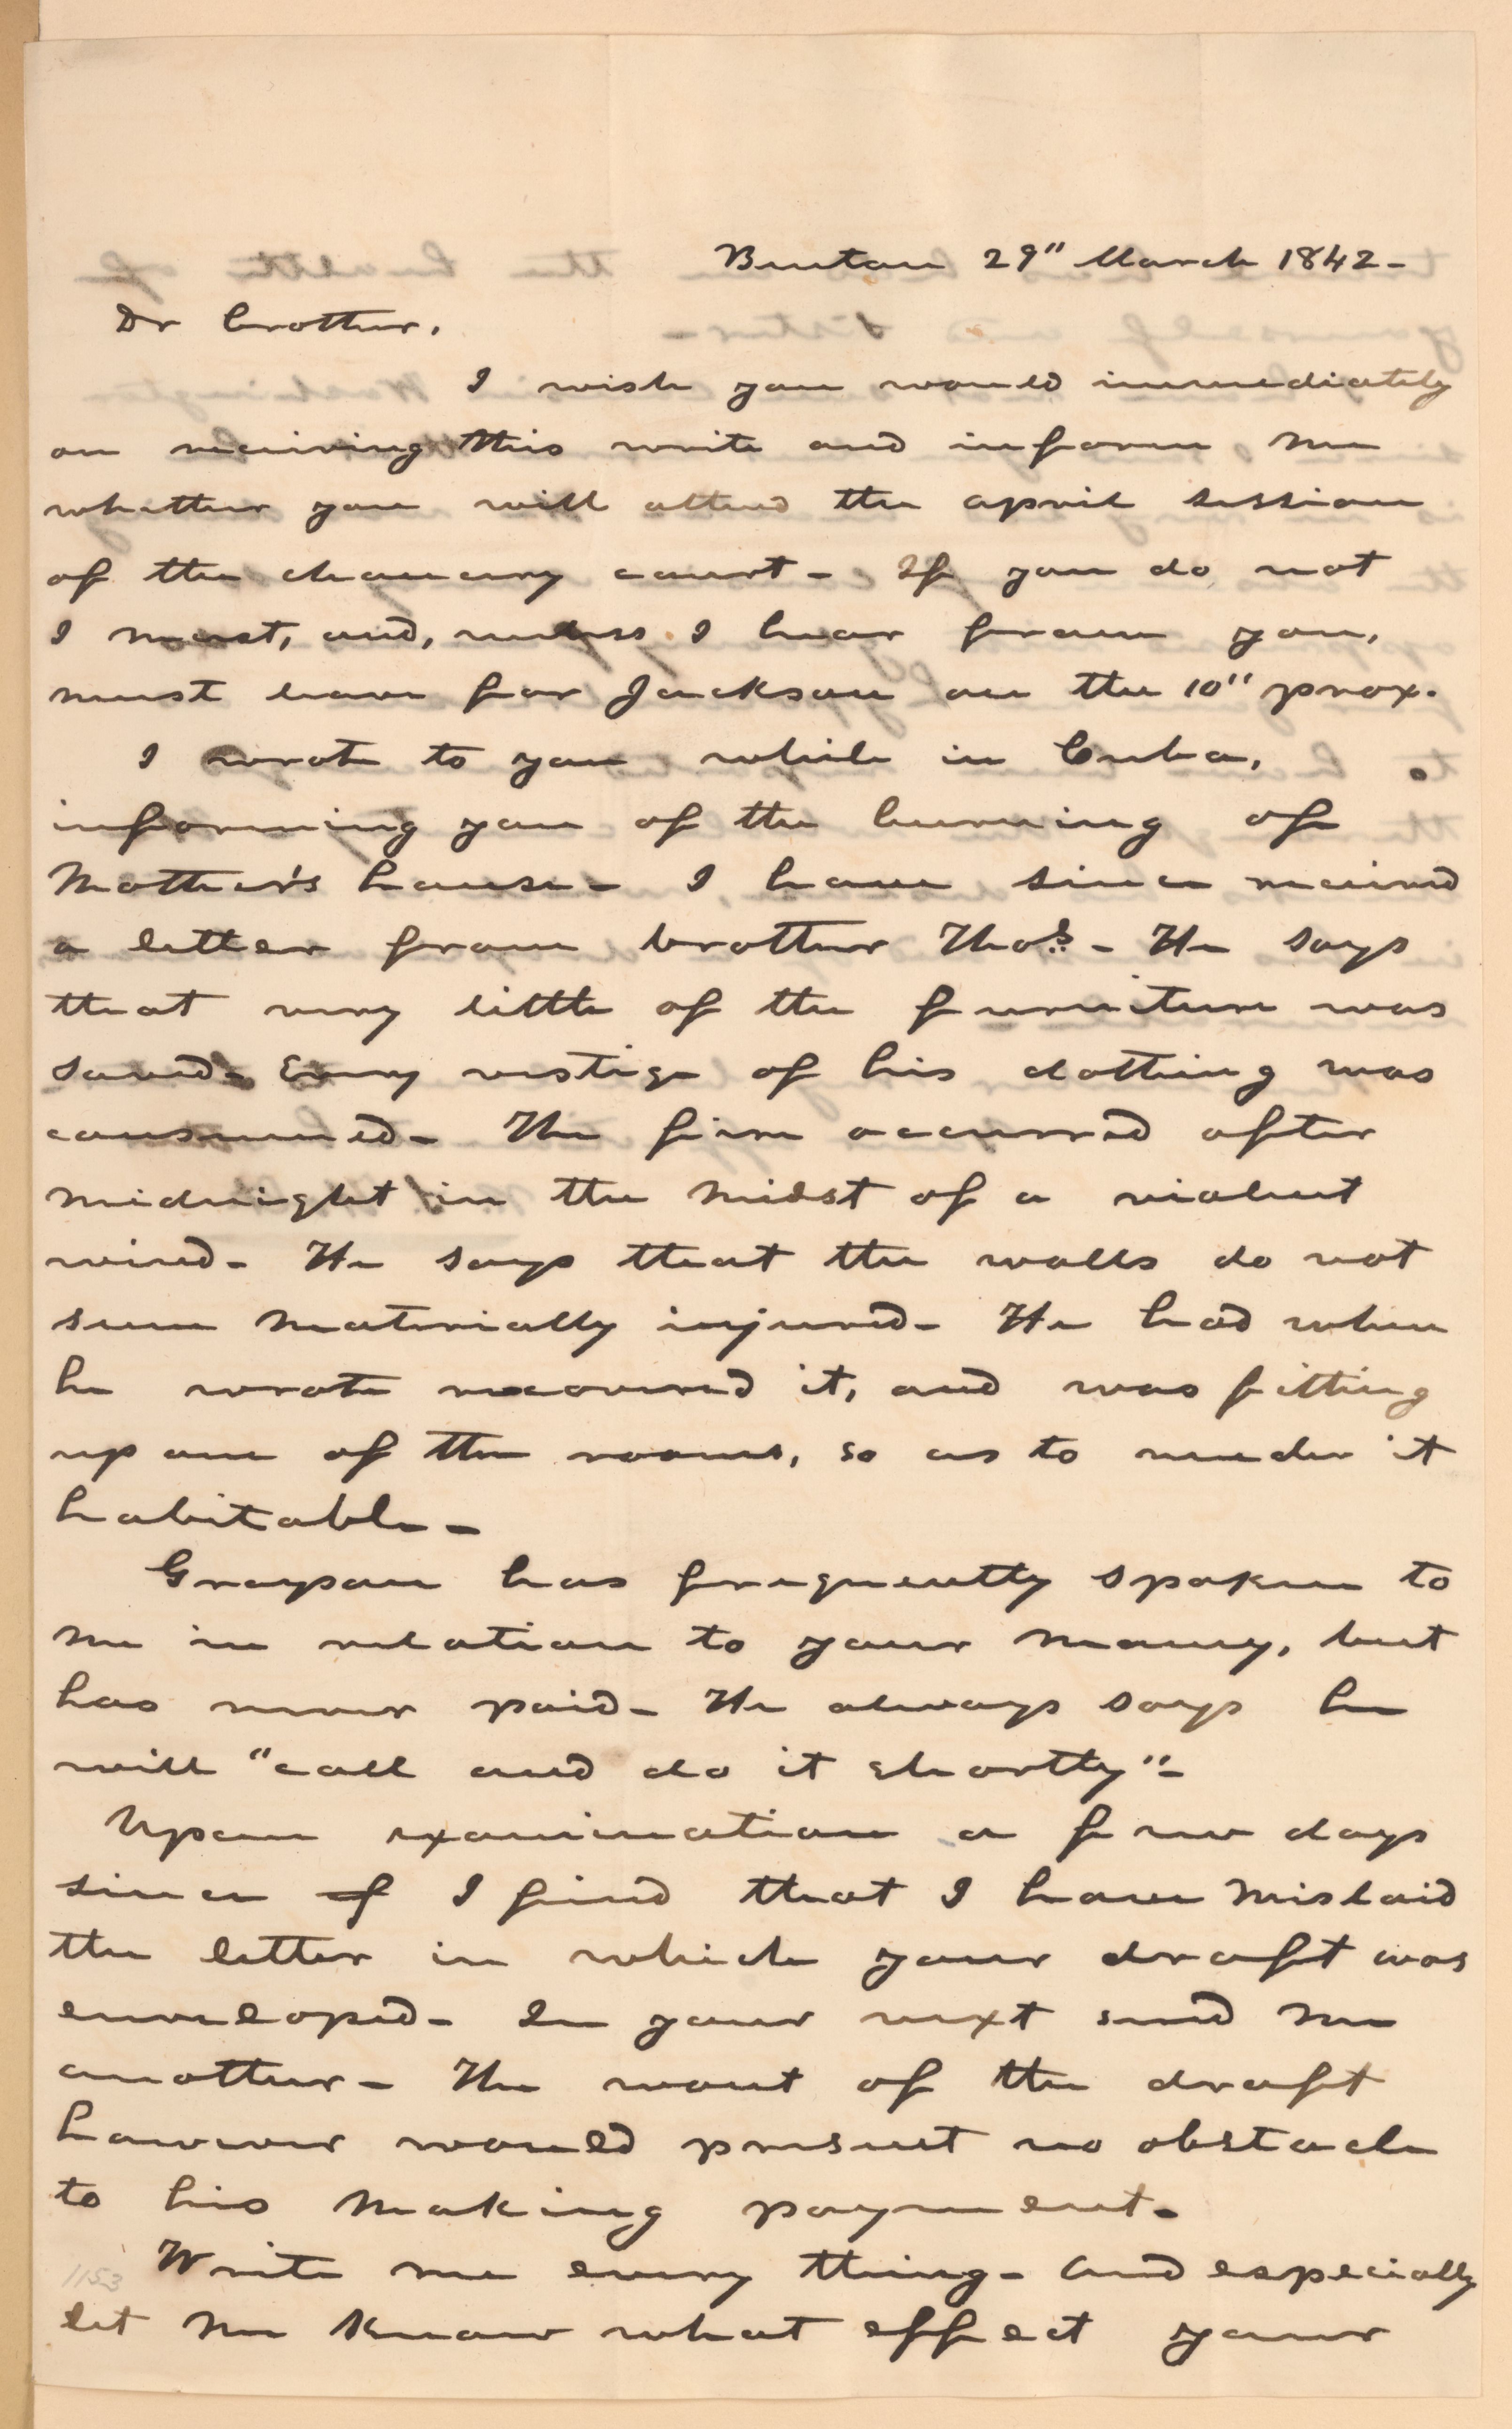 Benton 29" March 1842-
Dr brother,
I wish you would immediately
on receiving this write and inform me
whether you will attend the april session
of the chancery court - If you do not
I must, and, unless I hear from you,
must leave for Jackson on the 10" prox.
I wrote to you while in Cuba,
informing you of the burning of
Mother's house - I have since received
a letter from brother Thos. - He says
that very little of the furniture was
saved - Every vestige of his clothing was
consumed - The fire occurred after
midnight in the midst of a violent
wind - He says that the walls do not
seem materially injured - He had when
he wrote recovered it, and was fitting
up one of the rooms, so as to render it
habitable -
Grayson has frequently spoken to
me in relation to your money, but
has never paid - He always says he
will "call and do it shortly" -
Upon examination a few days
since of I find that I have mislaid
the letter in which your draft was
enveloped - In your next send me
another - The want of the draft
however would present no obstacle
to his making payment -
Write me every thing - and especially
let me know what effect your
1153